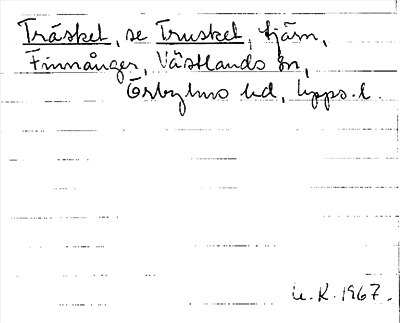 Träsket, se Trusket, tjärn,
Finnånger, Västlands sn,
Örbyhus hd, Upps. l.
U.K. 1967.